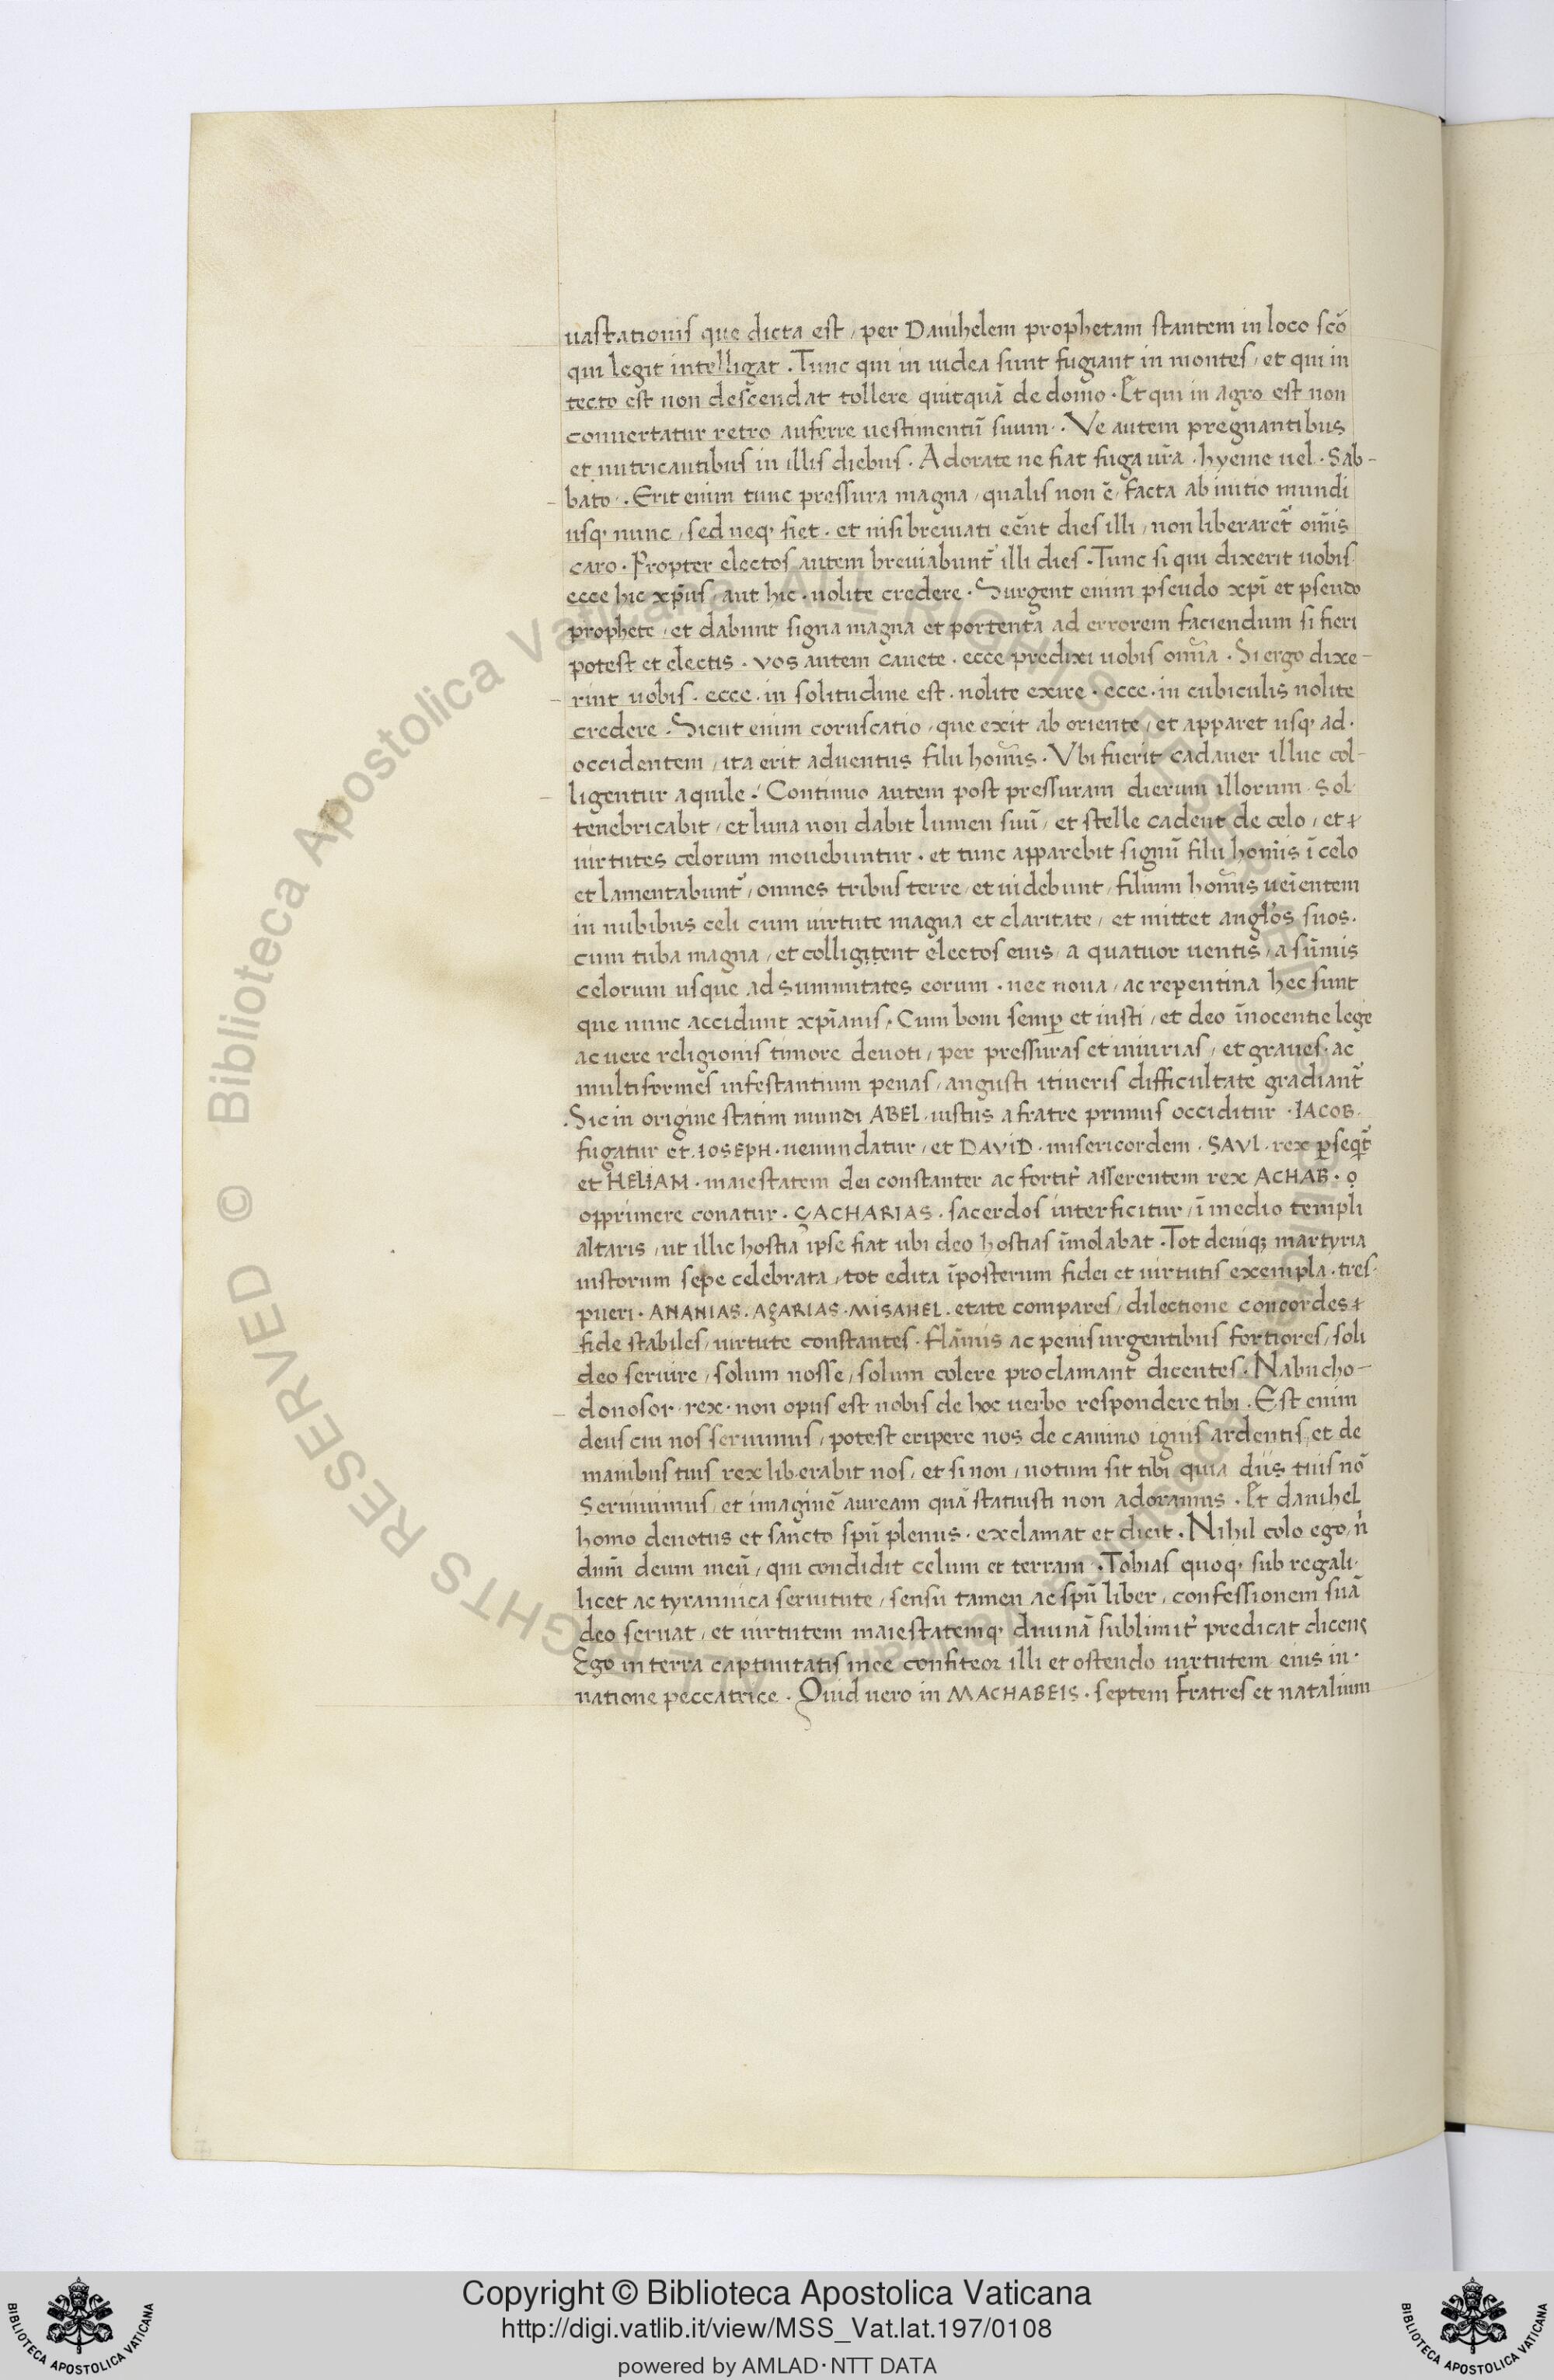 uastationis que dicta est, per Danihelem prophetam stantem in loco scō
qui legit intelligat. Tunc qui in iudea sunt fugiant in montes, et qui in
tecto est non descendat tollere quitquā de domo. Et qui in agro est non
conuertatur retro auferre uestimentū suum. Ve autem pregnantibus
et nutricantibus in illis diebus. Adorate ne fiat fuga ur̄a. hyeme uel. Sab-
bato. Erit enim tunc pressura magna, qualis non ē facta ab initio mundi
usq. nunc, sed neq. fiet. et nisi breuiati eēnt dies illi, non liberaret̄ om̄is
caro. Propter electos autem breuiabunt̄ illi dies. Tunc si qui dixerit uobis
ecce hic xp̄us, aut hic. nolite credere. Surgent enim pseudo xpī et pseudo
prophete, et dabunt signa magna et portenta ad errorem faciendum si fieri
potest et electis. vos autem cauete. ecce predixi uobis om̄ia. Si ergo dixe-
rint uobis. ecce. in solitudine est. nolite exire. ecce. in cubiculis nolite
credere. Sicut enim coruscatio, que exit ab oriente, et apparet usq. ad.
occidentem, ita erit aduentus filii hom̄is. Vbi fuerit cadauer illuc col-
ligentur aquile. Continuo autem post pressuram dierum illorum. Sol
tenebricabit, et luna non dabit lumen suū, et stelle cadent de celo, et
uirtutes celorum mouebuntur. et tunc apparebit signū filii hom̄is ī celo
et lamentabunt̄, omnes tribus terre, et uidebunt, filium hom̄is ueīentem
in nubibus celi cum uirtute magna et claritate, et mittet angl̄os suos.
cum tuba magna, et colligitent electos eius, a quatuor uentis, a sūmis
celorum usque ad summitates eorum. nec noua, ac repentina hec sunt
que nunc accidunt xpīanis. Cum boni semp̄ et iusti, et deo īnocentie lege
ac uere religionis timore deuoti, per pressuras et iniurias, et graues. ac
multiformes infestantium penas, angusti itineris difficultate gradiant̄
.Sic in origine statim mundi ABEL. iustus a fratre primus occiditur. IACOB.
fugatur et. IOSEPH. uenundatur, et DAVID. misericordem. SAVL. rex p̄seqt̄
et HELIAM. maiestatem dei constanter ac fortit̄ asserentem rex ACHAB. o
opprimere conatur. ÇACHARIAS. sacerdos interficitur, ī medio templi
altaris, ut illic hostia ipse fiat ubi deo hostias īmolabat. Tot deniq; martyria
iustorum sepe celebrata, tot edita īposterum fidei et uirtutis exempla. tres.
pueri. ANANIAS. AÇARIAS. MISAHEL. etate compares, dilectione concordes
fide stabiles, uirtute constantes. flāmis ac penis urgentibus fortiores, soli
deo seruire, solum nosse, solum colere proclamant dicentes. Nabucho-
donosor. rex. non opus est nobis de hoc uerbo respondere tibi. Est enim
deus cui nos seruimus, potest eripere nos de camino ignis ardentis, et de
manibus tuis rex liberabit nos, et si non, notum sit tibi quia diis tuis nō
Seruiuimus, et imaginē auream quā statuisti non adoramus. Et danihel
homo deuotus et sancto spū plenus. exclamat et dicit. Nihil colo ego, n̄
dnm̄ deum meū, qui condidit celum et terram. Tobias quoq. sub regali.
licet ac tyrannica seruitute, sensu tamen ac spū liber, confessionem suā
deo seruat, et uirtutem maiestatemq. diuinā sublimit̄ predicat dicens
Ego in terra captiuitatis mee confiteor illi et ostendo uirtutem eius in.
natione peccatrice. Quid uero in MACHABEIS. septem fratres et natalium
© Biblioteca Apostolica Vaticana ALL RIGHTS RESERVED
Copyright © Biblioteca Apostolica Vaticana
http://digi.vatlib.it/view/MSS_Vat.lat.197/0108
powered by AMLAD·NTT DATA
BIBLIOTECA APOSTOLICA VATICANA
BIBLIOTECA APOSTOLICA VATICANA